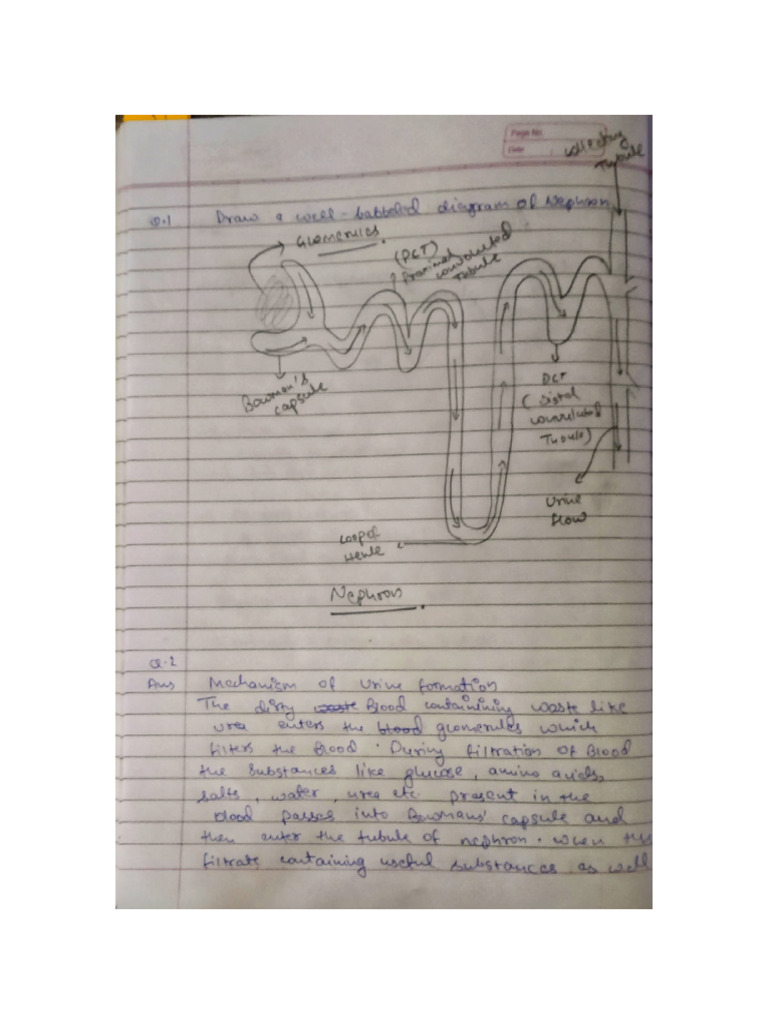 Page No.
Date
collecting
Tubule
Q.1 Draw a well-labbeled diagram of Nephron
Glomerules
(PCT)
Proximal
convoluted
Tubule
Bowman's
capsule
DCT
(Distal
convoluted
Tubule)
Urine
flow
Loop of
Henle
Nephron
Q.2
Ans Mechanism of Urine formation
The dirty waste Blood containining waste like
urea enters the blood glomerules which
filters the Blood. During filtration of Blood
the substances like glucose, amino acids,
salts, water, urea etc present in the
blood passes into Bowmans' capsule and
then enter the tubule of nephron. When the
filtrate containing useful substances as well